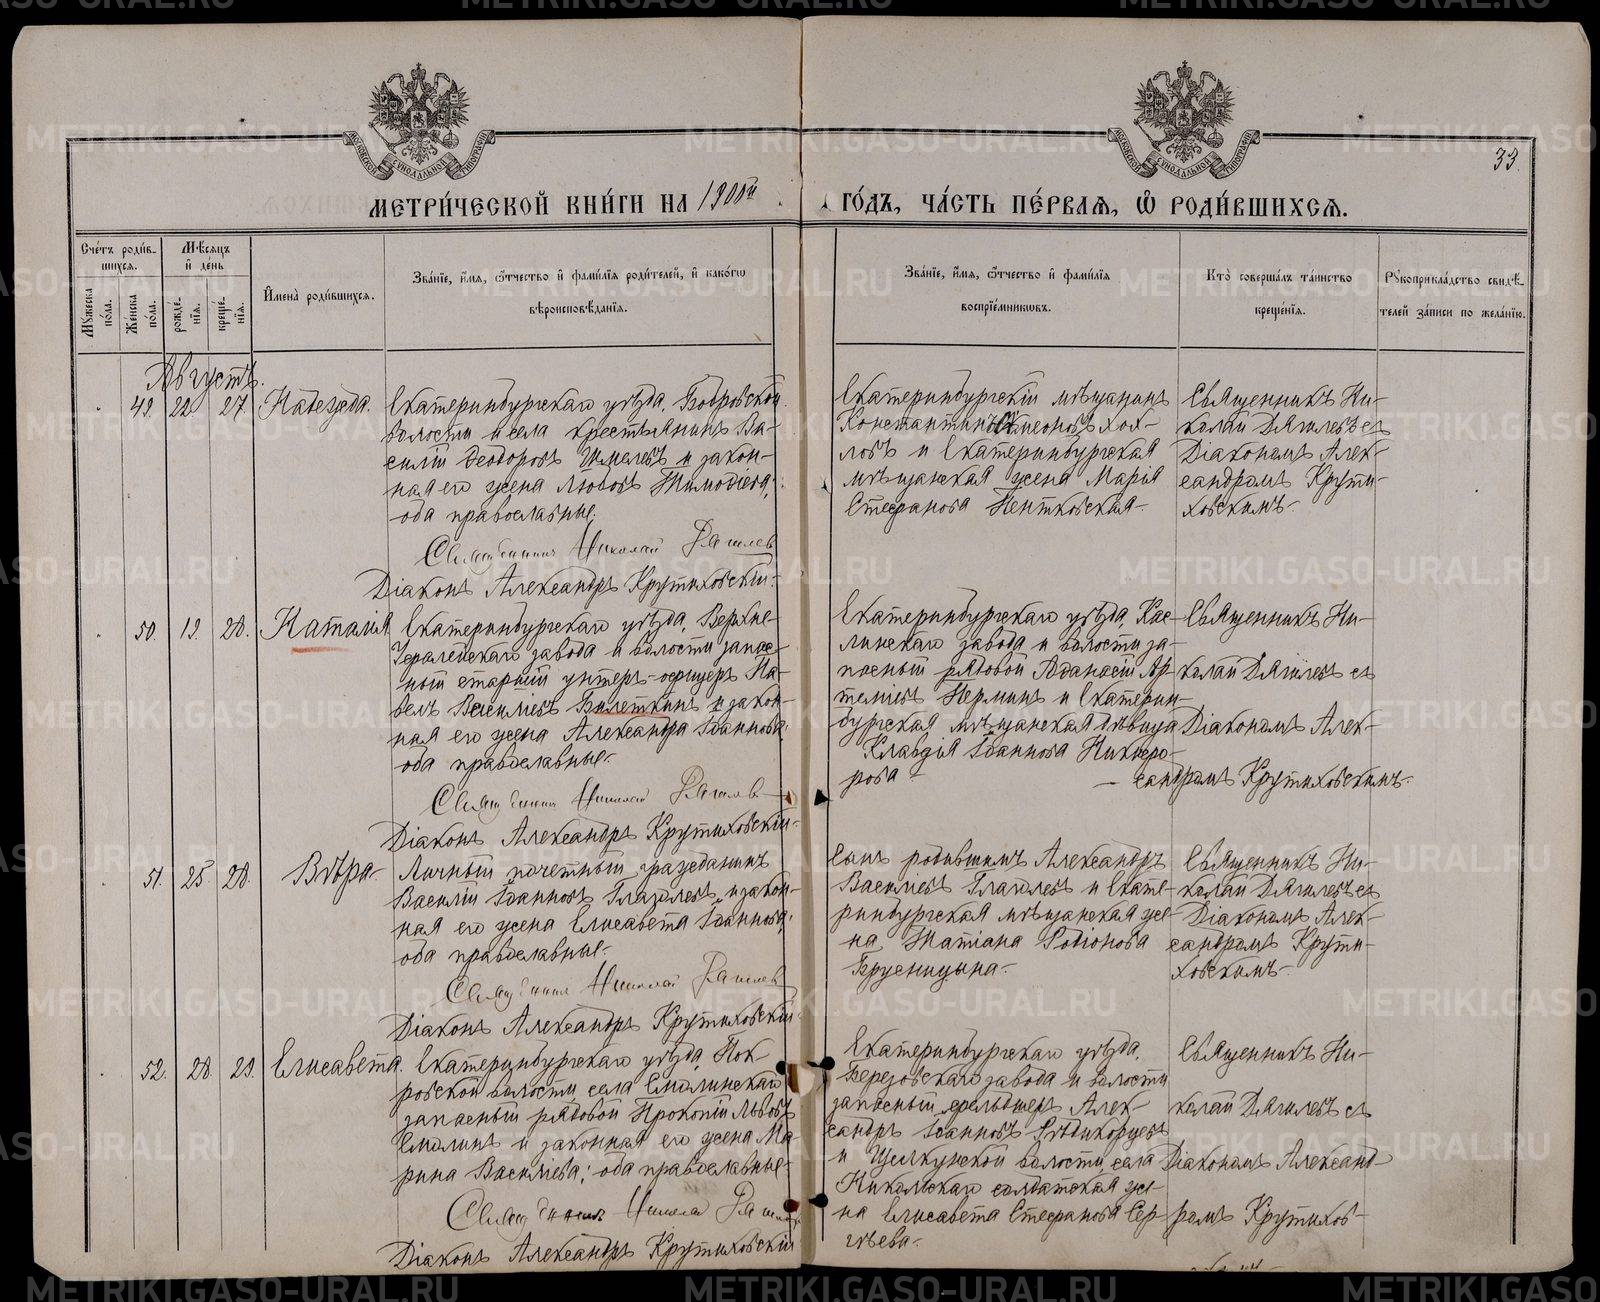 33.
МЕТРИ́ЧЕСКОЙ КНИ́ГИ НА 1900й
ГО́ДЪ, ЧА́СТЬ ПЕ́РВАѦ, Ѡ҆ РОДИ́ВШИХСѦ.
Сче́тъ роди́в-
шихсѧ.
Мѣ́сѧцъ
и҆ день
Мꙋжеска по́ла.
Же́нска по́ла.
рожде́нїѧ.
креще́нїѧ.
И҆мена̀ роди́вшихсѧ.
Зва́нїе, и҆́мѧ, ѻ҆́тчество и҆ фами́лїѧ роди́телей, и҆ како́гѡ
вѣроисповѣ́данїѧ.
Зва́нїе, и҆́мѧ, ѻ҆́тчество и҆ фами́лїѧ
воспрїе́мникѡвъ.
Кто̀ соверша́лъ та́инство
креще́нїѧ.
Рꙋкоприкла́дство свидѣ́-
телей за́писи по жела́нїю.
Августъ.
49. 22 27. Надежда.
Екатеринбургскаго уѣзда, Бобровской
волости и села крестьянинъ Ва-
силій Ѳеодоровъ Шмелевъ и закон-
ная его жена Любовь Тимоѳіева;
оба православные.
Священникъ Николай Дягилев
Діаконъ Александръ Крутиховскій.
Екатеринбургскій мѣщанинъ
Константинъ Симеоновъ Хох-
ловъ и Екатеринбургская
мѣщанская жена Марія
Стефанова Пентковская.
Священникъ Ни-
колай Дягилевъ съ
Діакономъ Алек-
сандромъ Крути-
ховскимъ.
50. 19. 28. Наталія
Екатеринбургскаго уѣзда, Верхне-
Уфалейскаго завода и волости запас-
ный старшій унтеръ-офицеръ Па-
велъ Васильевъ Билеткинъ и закон-
ная его жена Александра Іоаннова;
оба православные.
Священник Николай Дягилев
Діаконъ Александръ Крутиховскій
Екатеринбургскаго уѣзда, Кас-
линскаго завода и волости за-
пасный рядовой Аѳанасій Ар-
теміевъ Перминъ и Екатерин-
бургская мѣщанская дѣвица
Клавдія Іоаннова Никифо-
рова
Священникъ Ни-
колай Дягилевъ съ
Діакономъ Алек-
сандромъ Крутиховскимъ.
51. 25 28. Вѣра.
Личный почетный гражданинъ
Василій Іоанновъ Глаголевъ и закон-
ная его жена Елисавета Іоаннова;
оба православные.
Священник Николай Дягилев
Діаконъ Александръ Крутиховскій
Сынъ родившимъ Александръ
Васильевъ Глаголевъ и Екате-
ринбургская мѣщанская же-
на Татіана Родіонова
Брусницына.
Священникъ Ни-
колай Дягилевъ съ
Діакономъ Алек-
сандромъ Крути-
ховскимъ.
52. 28 29. Елисавета.
Екатеринбургскаго уѣзда, Пок-
ровской волости, села Смолинскаго
запасный рядовой Прокопій Львовъ
Смолинъ и законная его жена Ма-
рина Васильева; оба православные.
Священник Николай Дягилев
Діаконъ Александръ Крутиховскій
Екатеринбургскаго уѣзда,
Березовскаго завода и волости
запасный фельдшеръ Алек-
сандръ Іоанновъ
и Щелкунской волости, села
Никольскаго солдатская же-
на Елисавета Стефанова Сер-
гѣева.
Священникъ Ни-
колай Дягилевъ съ
Діакономъ Александ-
ромъ Крутихов-